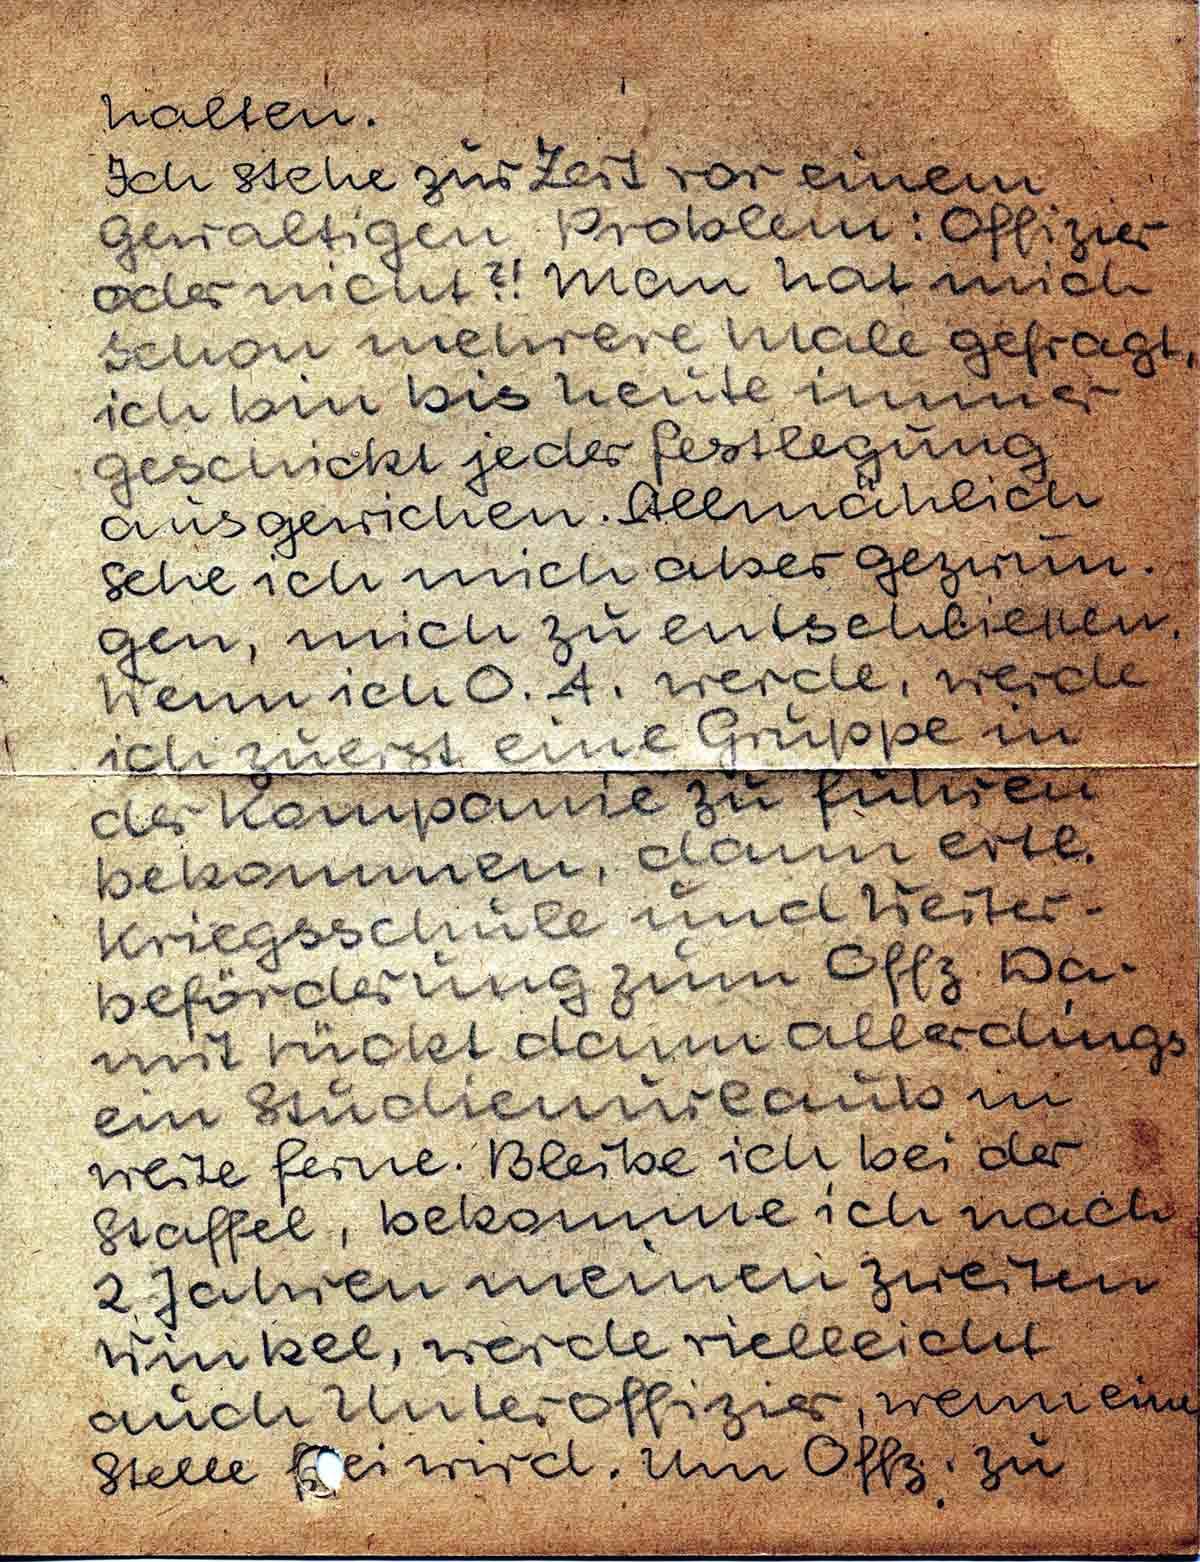 halten.
Ich stehe zur Zeit vor einem
gewaltigen Problem: Offizier
oder nicht?! Man hat mich
schon mehrere Male gefragt,
ich bin bis heute immer
geschickt jeder Festlegung
ausgewichen. Allmählich
sehe ich mich aber gezwun-
gen, mich zu entschließen.
Wenn ich O. A. werde, werde
ich zuerst eine Gruppe in
der Kompanie zu führen
bekommen, dann evtl.
Kriegsschule und Weiter-
beförderung zum Offz. Da-
mit rückt dann allerdings
ein Studienurlaub in
weite Ferne. Bleibe ich bei der
Staffel, bekomme ich nach
2 Jahren meinen zweiten
Winkel, werde vielleicht
auch Unteroffizier, wenn eine
Stelle frei wird. Um Offz. zu